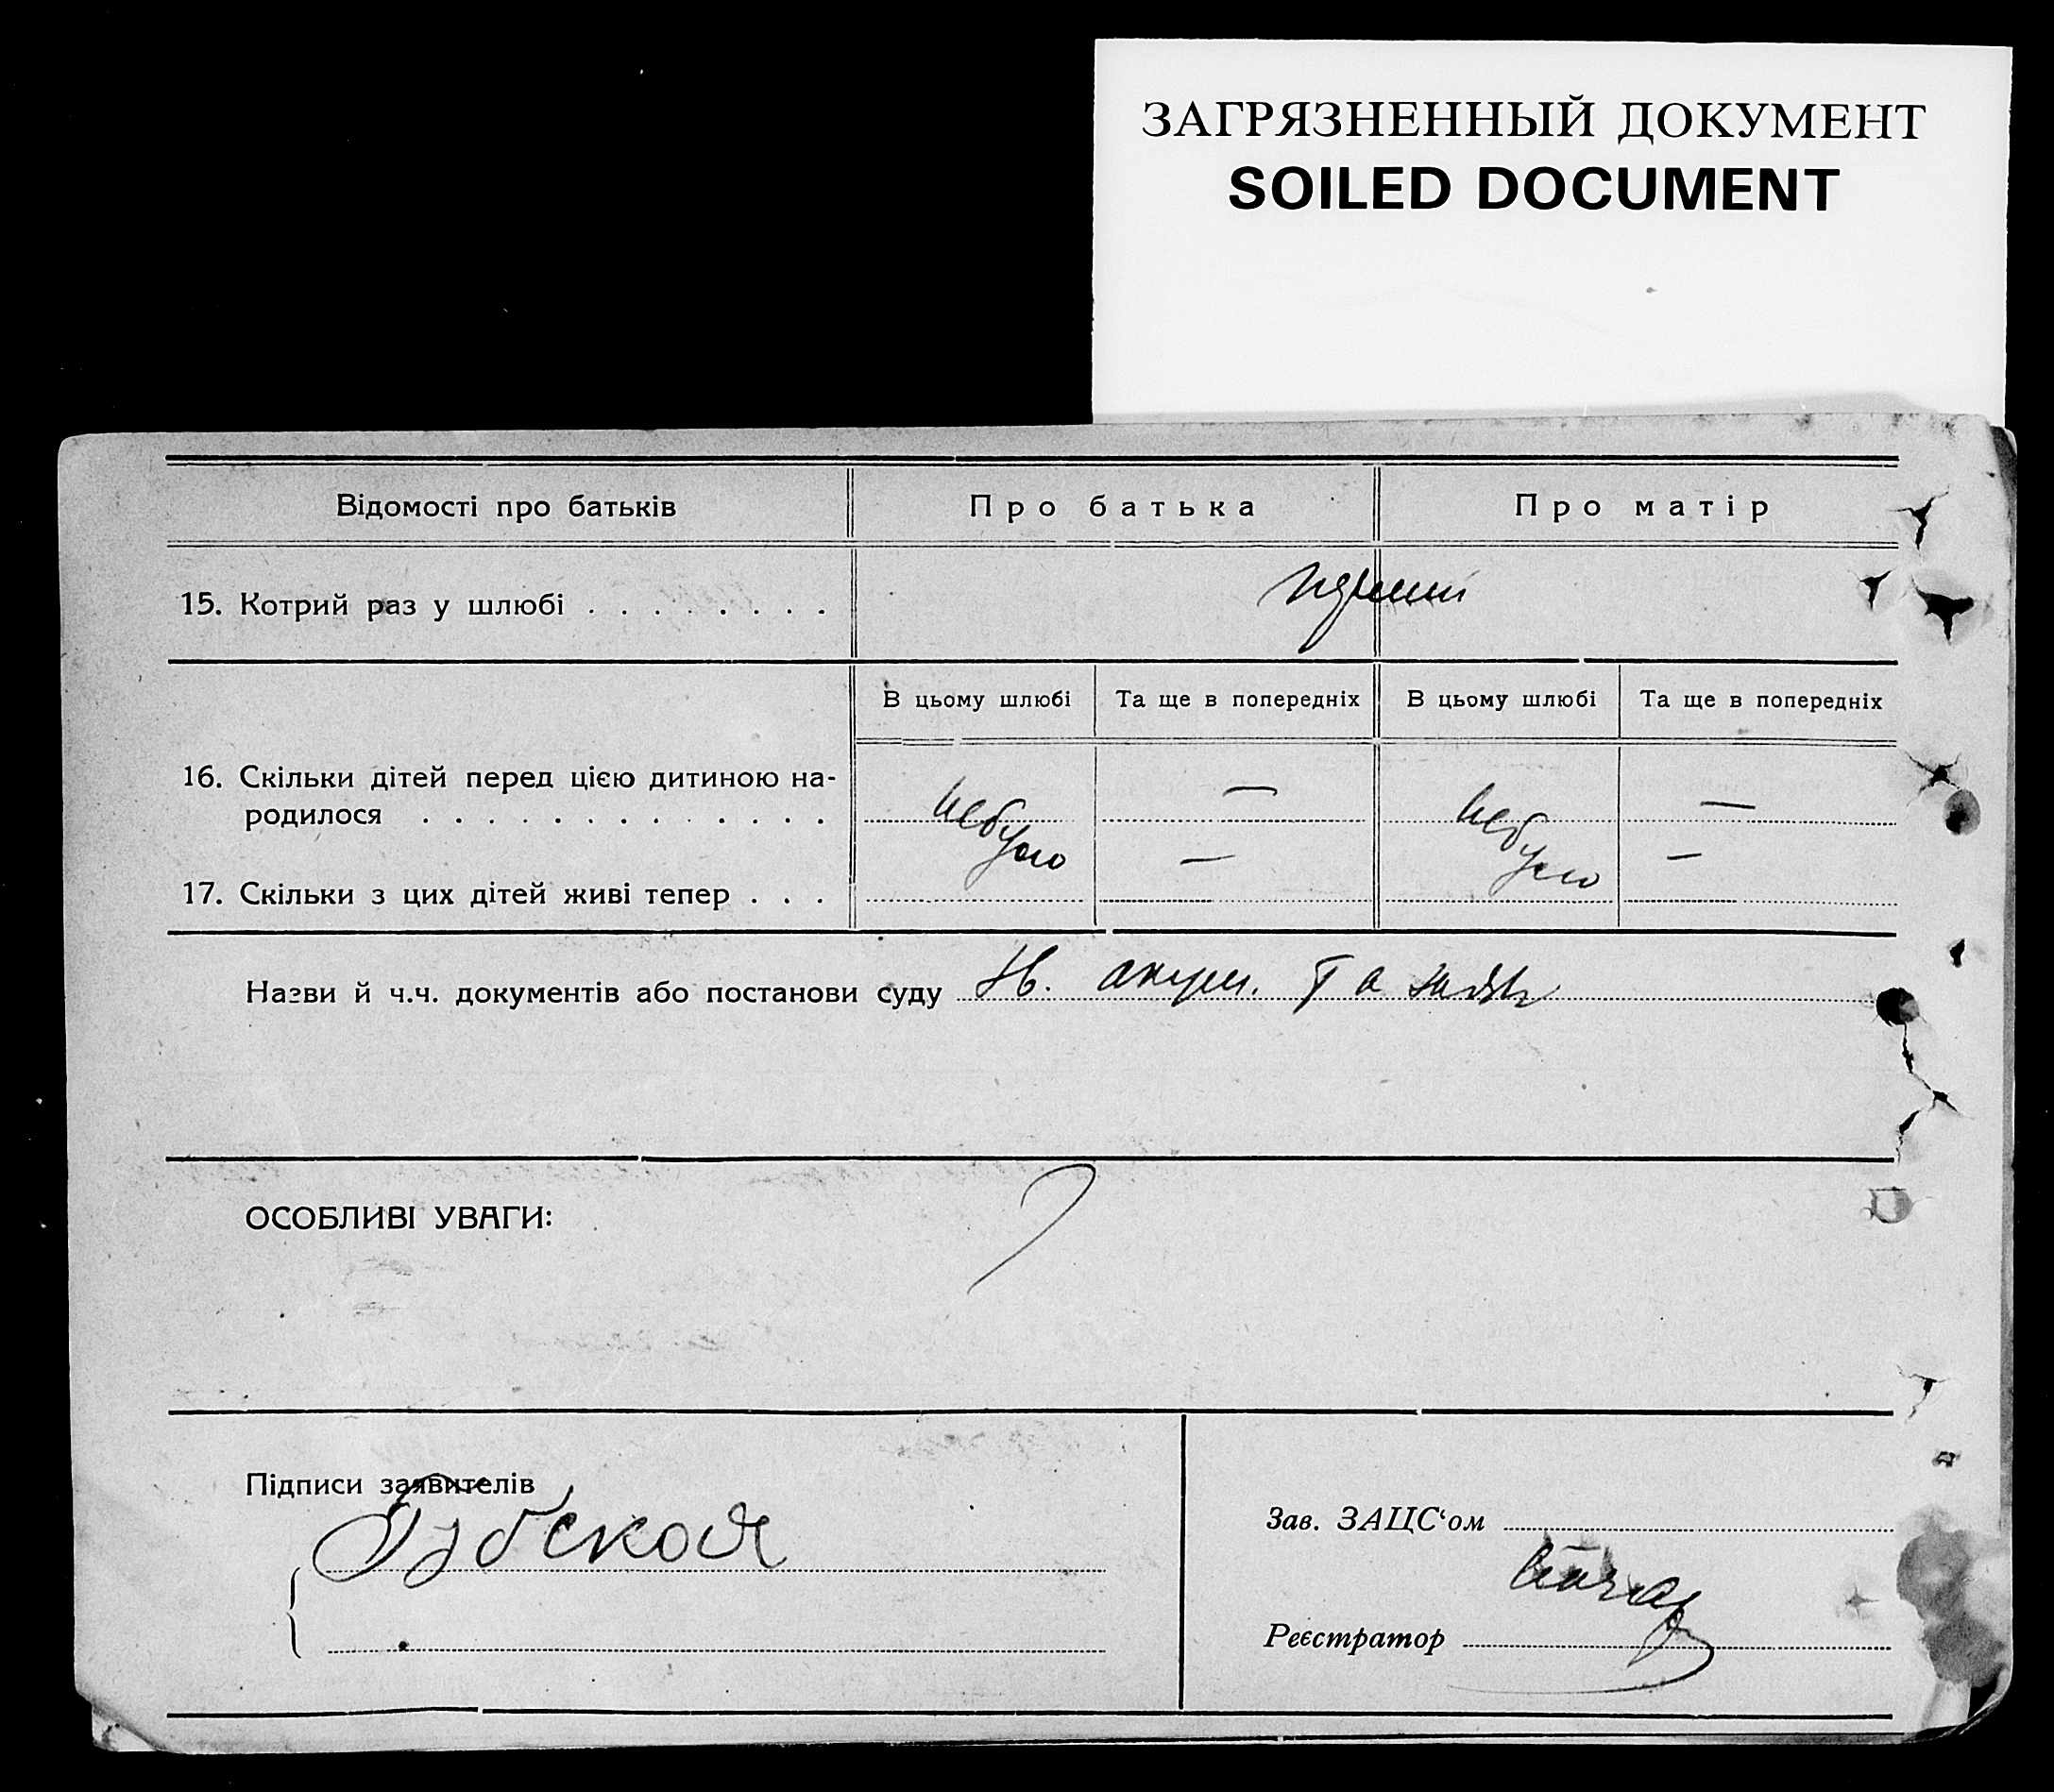 ЗАГРЯЗНЕННЫЙ ДОКУМЕНТ
SOILED DOCUMENT
Відомості про батьків Про батька Про матір
15. Котрий раз у шлюбі . . . . . . . .
В цьому шлюбі Та ще в попередніх В цьому шлюбі Та ще в попередніх
16. Скільки дітей перед цією дитиною на-
родилося . . . . . . . . . . . . . — —
небуло — небуло —
17. Скільки з цих дітей живі тепер . . .
Назви й ч.ч. документів або постанови суду
ОСОБЛИВІ УВАГИ:
Підписи заявителів
Зав. ЗАЦС‘ом
Реєстратор